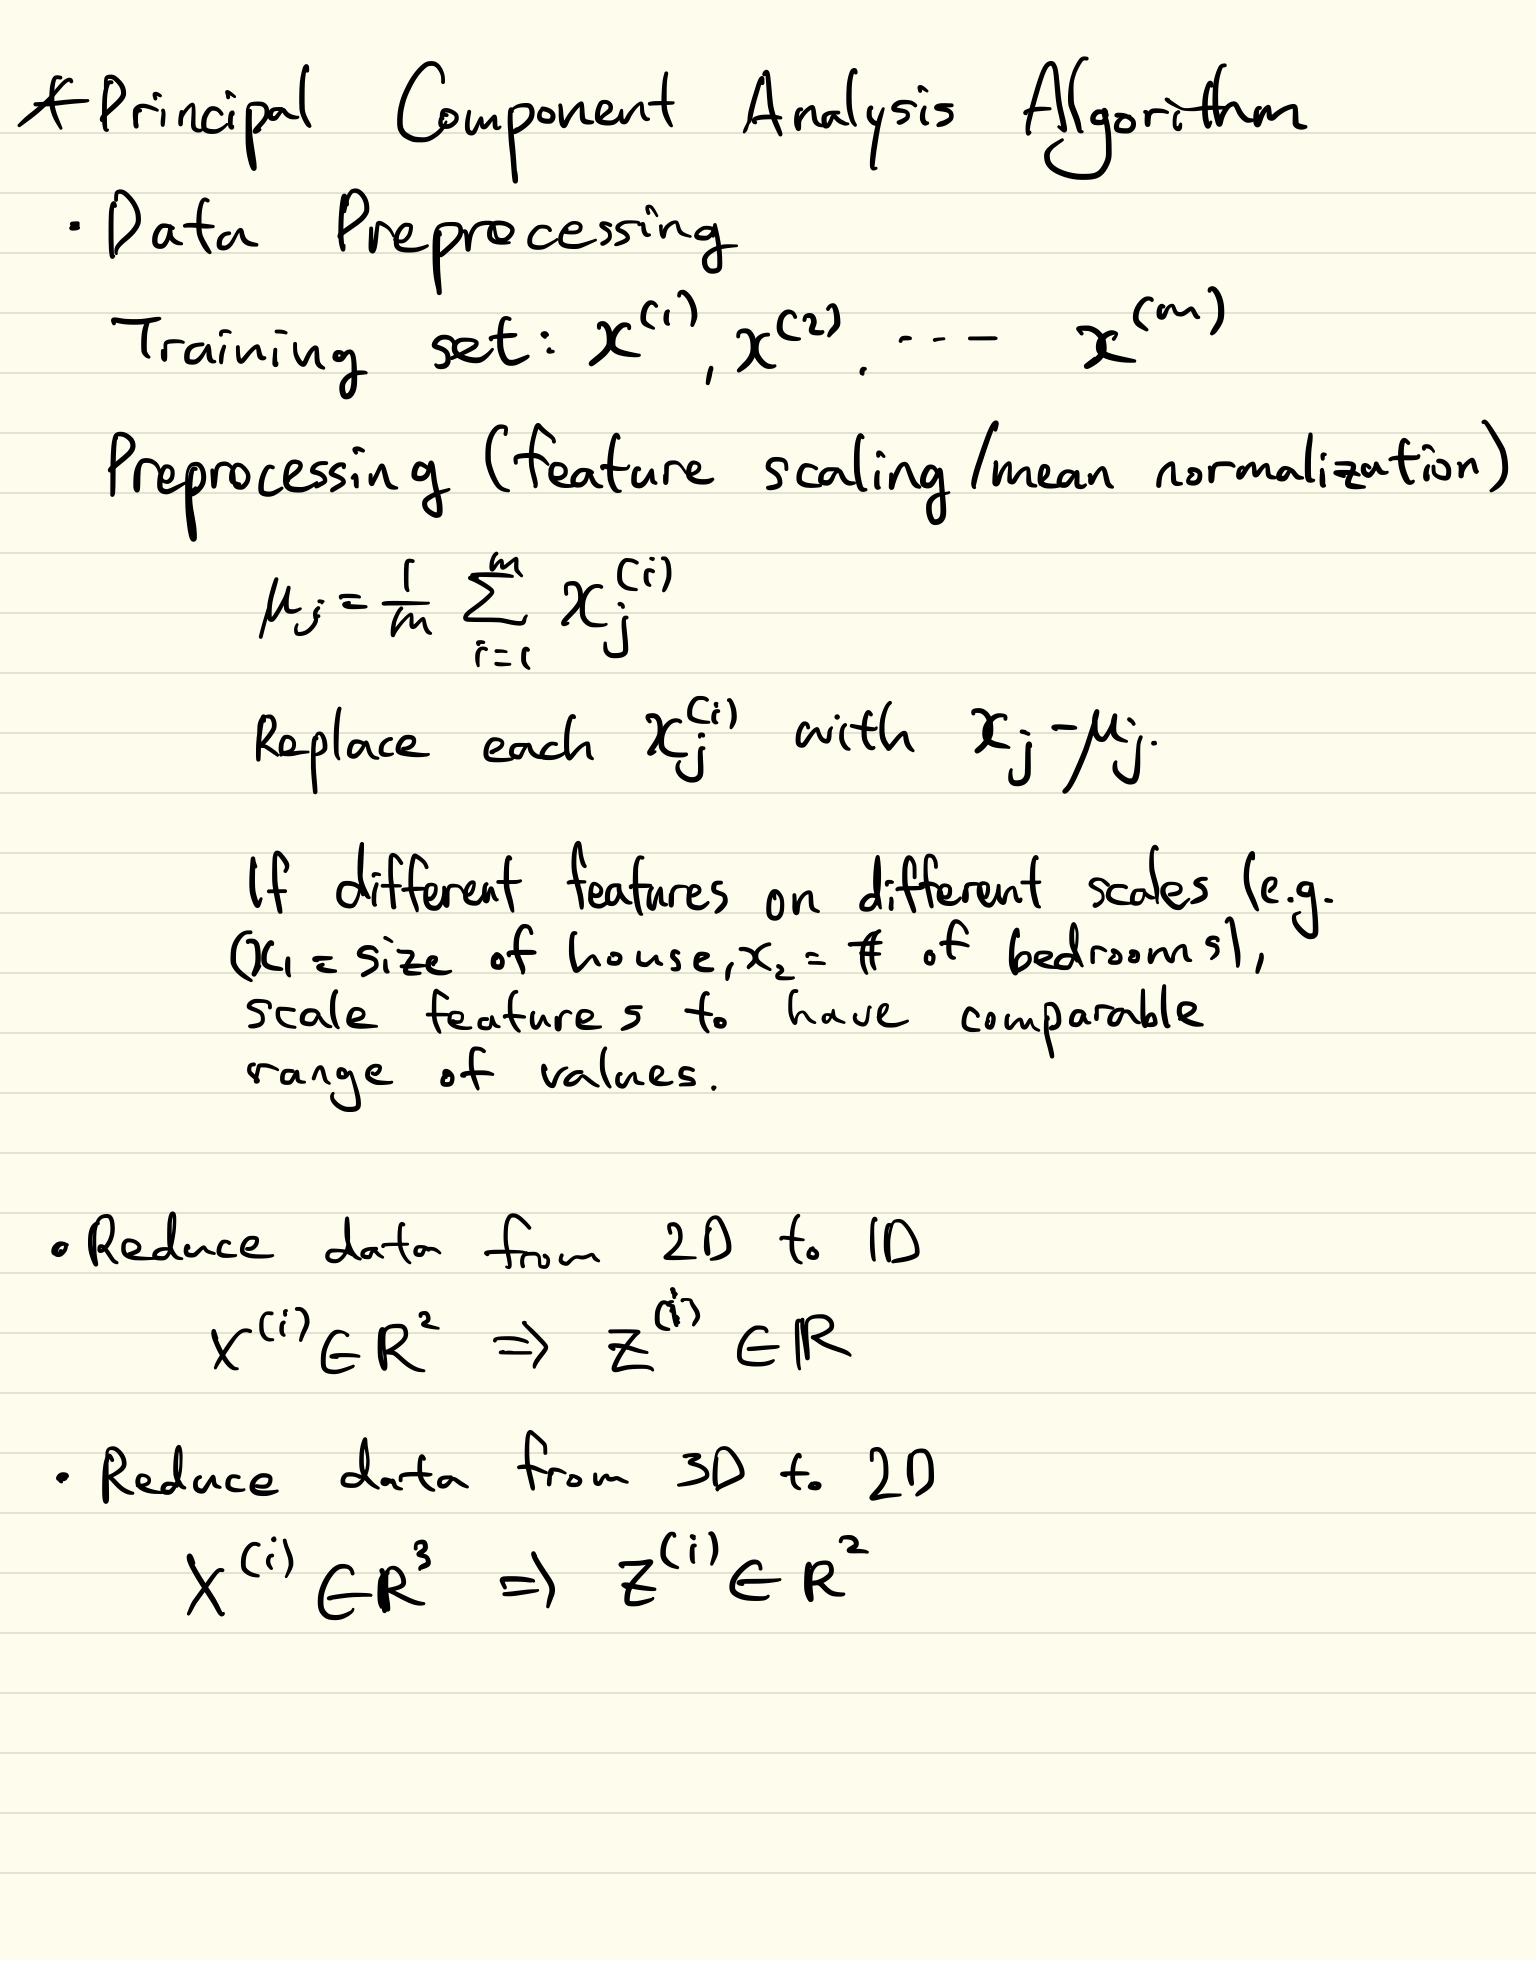 * Principal Component Analysis Algorithm
· Data Preprocessing
Training set: x^(1), x^(2), ... x^(m)
Preprocessing (feature scaling/mean normalization)
μ_j = 1/m Σ_{i=1}^{m} x_j^(i)
Replace each x_j^(i) with x_j - μ_j.
If different features on different scales (e.g.
(x₁ = size of house, x₂ = # of bedrooms),
scale features to have comparable
range of values.
• Reduce data from 2D to 1D
x^(i) ∈ ℝ² ⇒ z^(i) ∈ ℝ
· Reduce data from 3D to 2D
x^(i) ∈ ℝ³ ⇒ z^(i) ∈ ℝ²